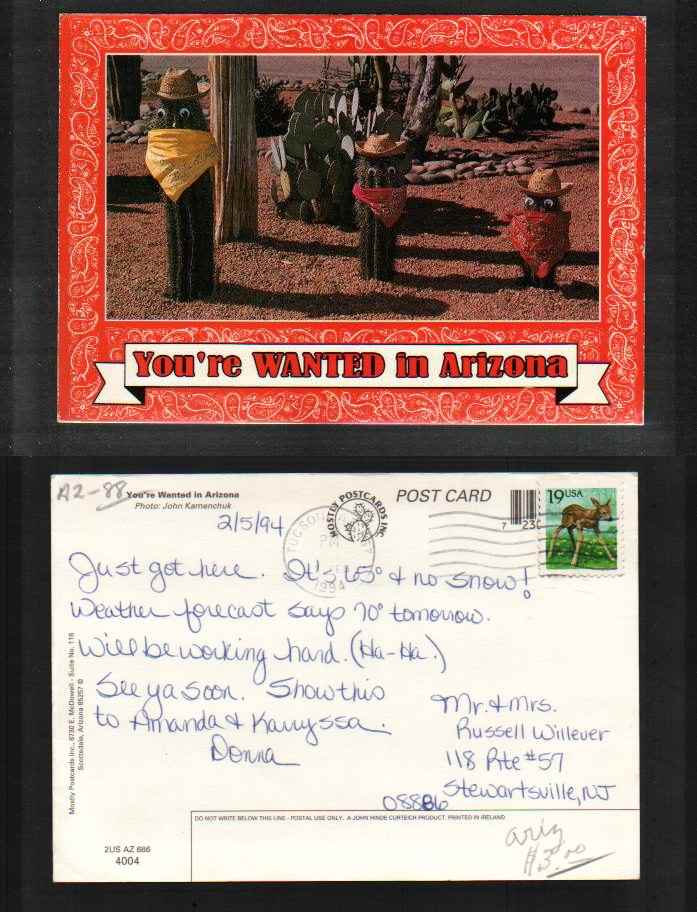 You're WANTED in Arizona
AZ-88
You're Wanted in Arizona
Photo: John Kamenchuk
POST CARD
MOSTLY POSTCARDS INC
TUCSON
PM
1994
19USA
7 230
2/5/94
Just got here. It's 65° & no snow!
Weather forecast says 70° tomorrow.
Will be working hard. (Ha-Ha!)
See ya soon. Show this
to Amanda & Karryssa.
Donna
Mr. & Mrs.
Russell Willever
118 Rte #57
Stewartsville, NJ
08886
Mostly Postcards Inc., 6730 E. McDowell - Suite No. 116
Scottsdale, Arizona 85257 ©
DO NOT WRITE BELOW THIS LINE - POSTAL USE ONLY. A JOHN HINDE CURTEICH PRODUCT. PRINTED IN IRELAND
2US AZ 686
4004
ariz
$3.00